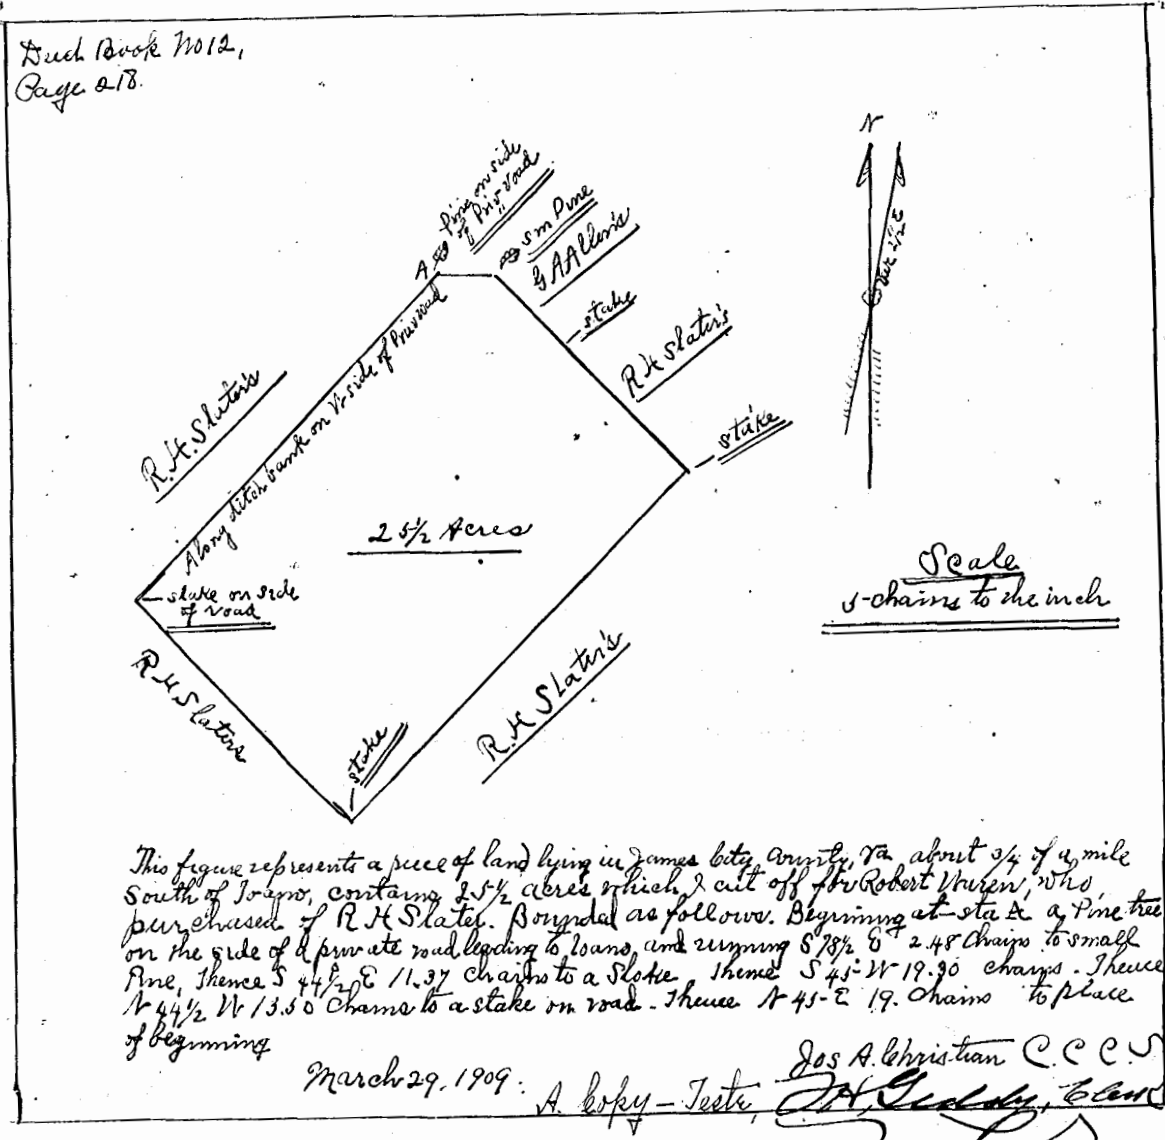 Deed Book No 12,
Page 218.
N
Var 2 1/2 E
Pine on side
of Priv road
A
Sm Pine
G A Allen's
stake
R H Slater's
stake
R. H. Slater's
Along ditch bank on side of Priv road
25 1/2 Acres
stake on side
of road
R H Slaters
stake
R. H Slater's
Scale
5-chains to the inch
This figure represents a piece of land lying in James City County, Va about 3/4 of a mile
South of Toano, contains 25 1/2 acres which I cut off for Robert who
purchased of R H Slater. Bounded as follows. Beginning at sta A a Pine tree
on the side of a private road leading to Toano and running S 78 1/2 E 2.48 Chains to small
Pine, Thence S 44 1/2 E 11.37 chains to a Stake Thence S 45- W 19.90 chains. Thence
N 44 1/2 W 13.50 Chains to a stake on road. Thence N 45- E 19. Chains to place
of beginning
Jos A. Christian C. C C
March 29, 1909.
A Copy - Teste, Geddy, Clerk